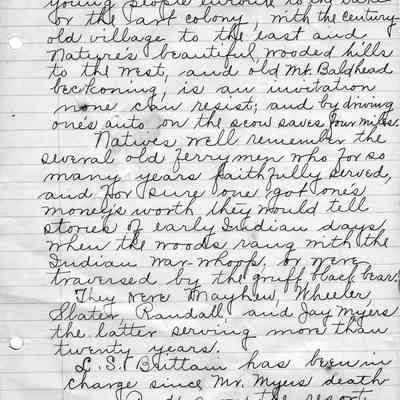 young people enroute to the lake
or the art colony, with the century-
old village to the east and
Nature's beautiful wooded hills
to the west, and old Mt. Baldhead
beckoning, is an invitation
none can resist; and by driving
one's auto on the scow saves four miles.
Natives well remember the
several old ferrymen who for so
many years faithfully served,
and for sure one got one's
money's worth they would tell
stories of early Indian days
when the woods rang with the
Indian war-whoop, or were
traversed by the gruff black bear.
They were Mayhew, Wheeler,
Slater, Randall, and Jay Myers
the latter serving more than
twenty years.
L.S. Brittain has been in
charge since Mr. Myers death
the resort